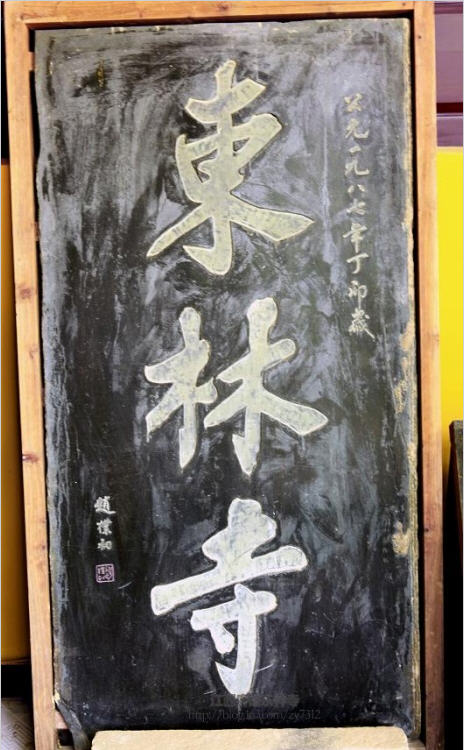 公元一九八七年丁卯歲
東林寺
趙樸初
http://blog.163.com/zy7312